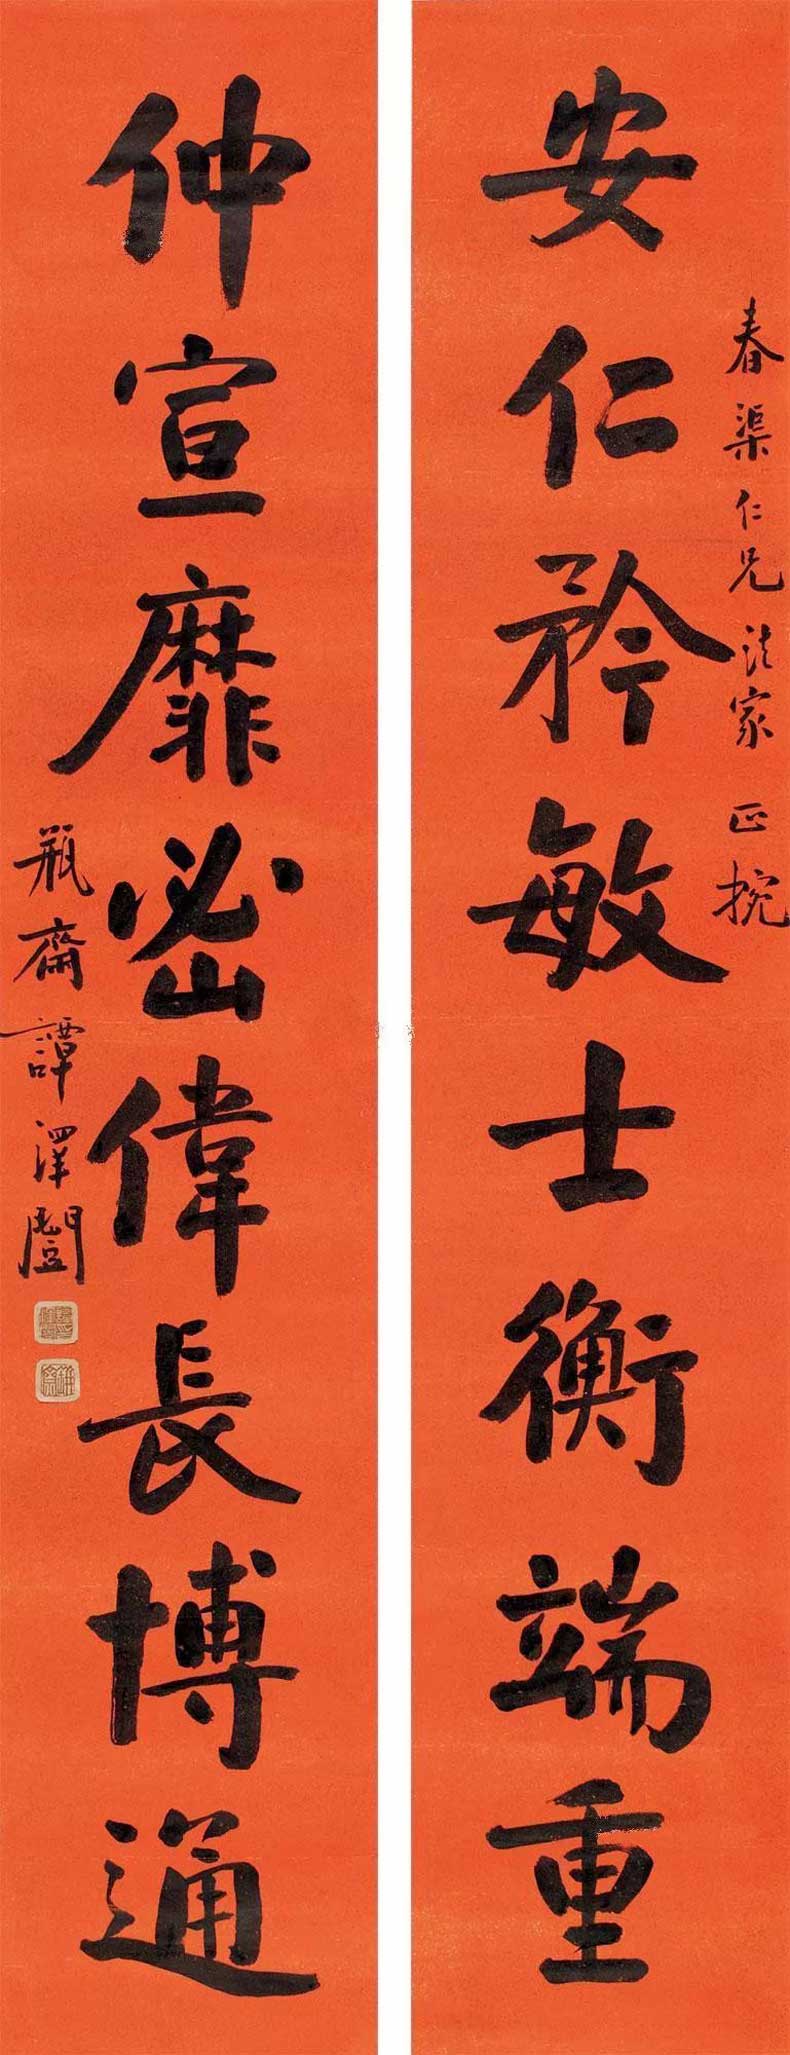 安仁矜敏士衡端重
春渠仁兄法家正捥
仲宣靡密偉長博通
瓶齋譚澤闓